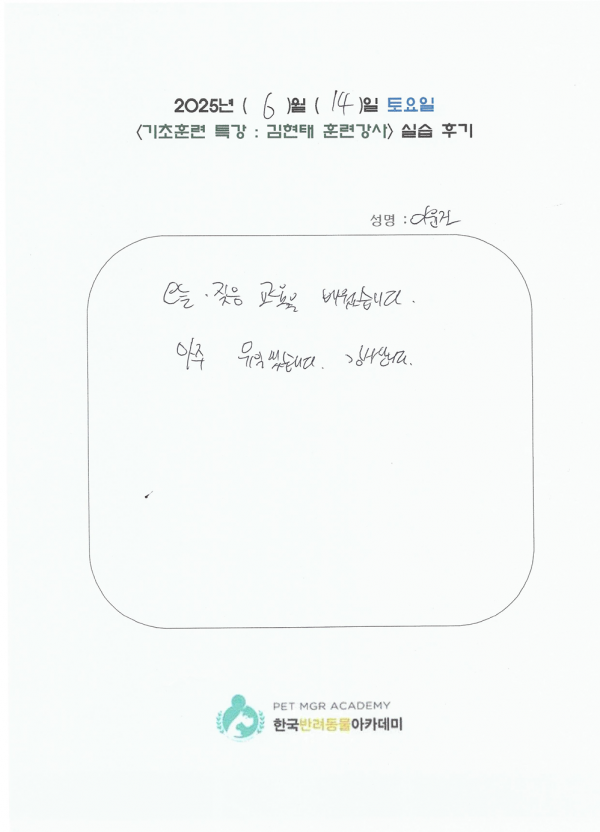 2025년 ( 6 )월 ( 14 )일 토요일
<기초훈련 특강 : 김현태 훈련강사> 실습 후기
성명 : 이윤진
오늘 · 짖음 교육을 배웠습니다.
아주 유익했습니다. 감사합니다.
PET MGR ACADEMY
한국반려동물아카데미